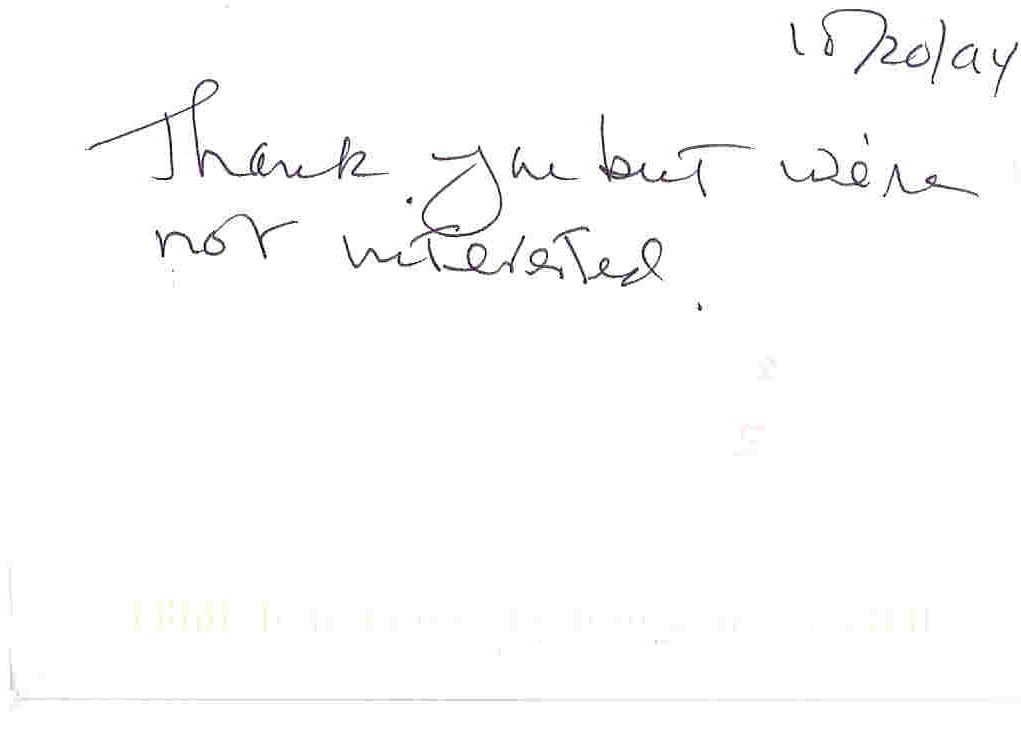 10/20/94
Thank you but we're
not interested.